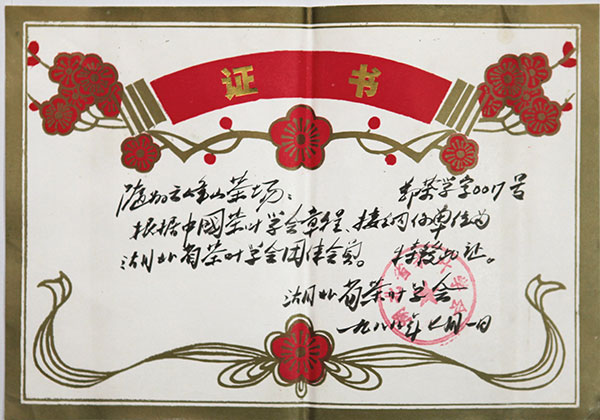 证书
鄂茶学字0017号
山茶场:
根据中國茶叶学会章程、接纳你单位为
湖北省茶叶学会团体会员。特发此证。
湖北省茶叶学会
一九八八年七月一日